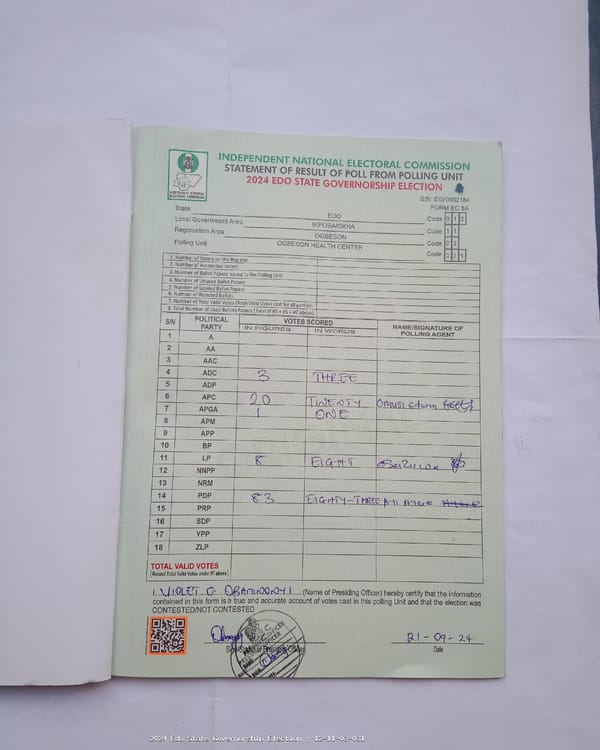 INDEPENDENT NATIONAL ELECTORAL COMMISSION
STATEMENT OF RESULT OF POLL FROM POLLING UNIT
2024 EDO STATE GOVERNORSHIP ELECTION
INEC
INDEPENDENT NATIONAL ELECTORAL COMMISSION
S/N: EG/0002184
FORM EC 8A
State EDO Code 0 1 2
Local Government Area IKPOBA/OKHA Code 1 1
Registration Area OGBESON Code 0 3
Polling Unit OGBESON HEALTH CENTER Code 0 3 1
1. Number of Voters on the Register
2. Number of Accredited Voters
3. Number of Ballot Papers Issued to the Polling Unit
4. Number of Unused Ballot Papers
5. Number of Spoiled Ballot Papers
6. Number of Rejected Ballots
7. Number of Total Valid Votes (Total Valid Votes cast for all parties)
8. Total Number of Used Ballot Papers (Total of #5 + #6 + #7 above)
S/N POLITICAL PARTY VOTES SCORED NAME/SIGNATURE OF POLLING AGENT
IN FIGURES IN WORDS
1 A
2 AA
3 AAC
4 ADC 3 THREE
5 ADP
6 APC 20 TWENTY
7 APGA 1 ONE
8 APM
9 APP
10 BP
11 LP 8 EIGHT
12 NNPP
13 NRM
14 PDP 83 EIGHTY-THREE
15 PRP
16 SDP
17 YPP
18 ZLP
TOTAL VALID VOTES
(Record Total Valid Votes under #7 above)
I, VIOLET O. (Name of Presiding Officer) hereby certify that the information
contained in this form is a true and accurate account of votes cast in this polling Unit and that the election was
CONTESTED/NOT CONTESTED
21-09-24
Date
2024 Edo State Governorship Election : 12-11-03-031